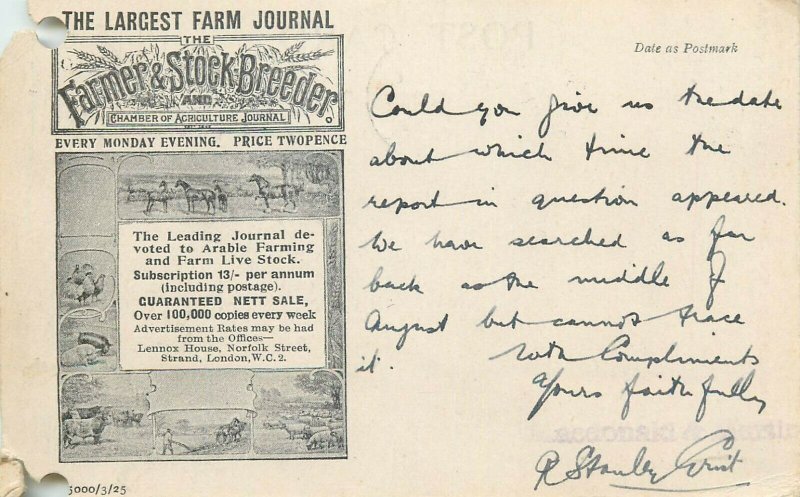 THE LARGEST FARM JOURNAL
THE
Farmer & Stock-Breeder
AND
CHAMBER OF AGRICULTURE JOURNAL
EVERY MONDAY EVENING. PRICE TWOPENCE
The Leading Journal de-
voted to Arable Farming
and Farm Live Stock.
Subscription 13/- per annum
(including postage).
GUARANTEED NETT SALE,
Over 100,000 copies every week
Advertisement Rates may be had
from the Offices—
Lennox House, Norfolk Street,
Strand, London, W.C. 2.
5000/3/25
Date as Postmark
Could you give us the date
about which time the
report in question appeared.
We have searched as far
back as the middle of
August but cannot trace
it.
With Compliments
Yours faithfully
R Stanley